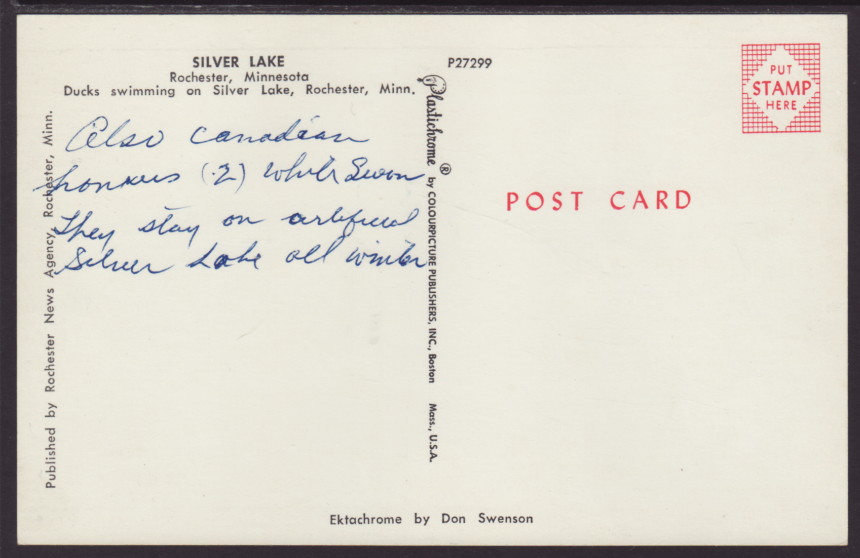 SILVER LAKE
Rochester, Minnesota
Ducks swimming on Silver Lake, Rochester, Minn.
P27299
PUT
STAMP
HERE
Also Canadian
honkers (2) White Swan
They stay on artificial
Silver Lake all winter
Published by Rochester News Agency, Rochester, Minn.
Plastichrome ® by COLOURPICTURE PUBLISHERS, INC., Boston Mass., U.S.A.
POST CARD
Ektachrome by Don Swenson